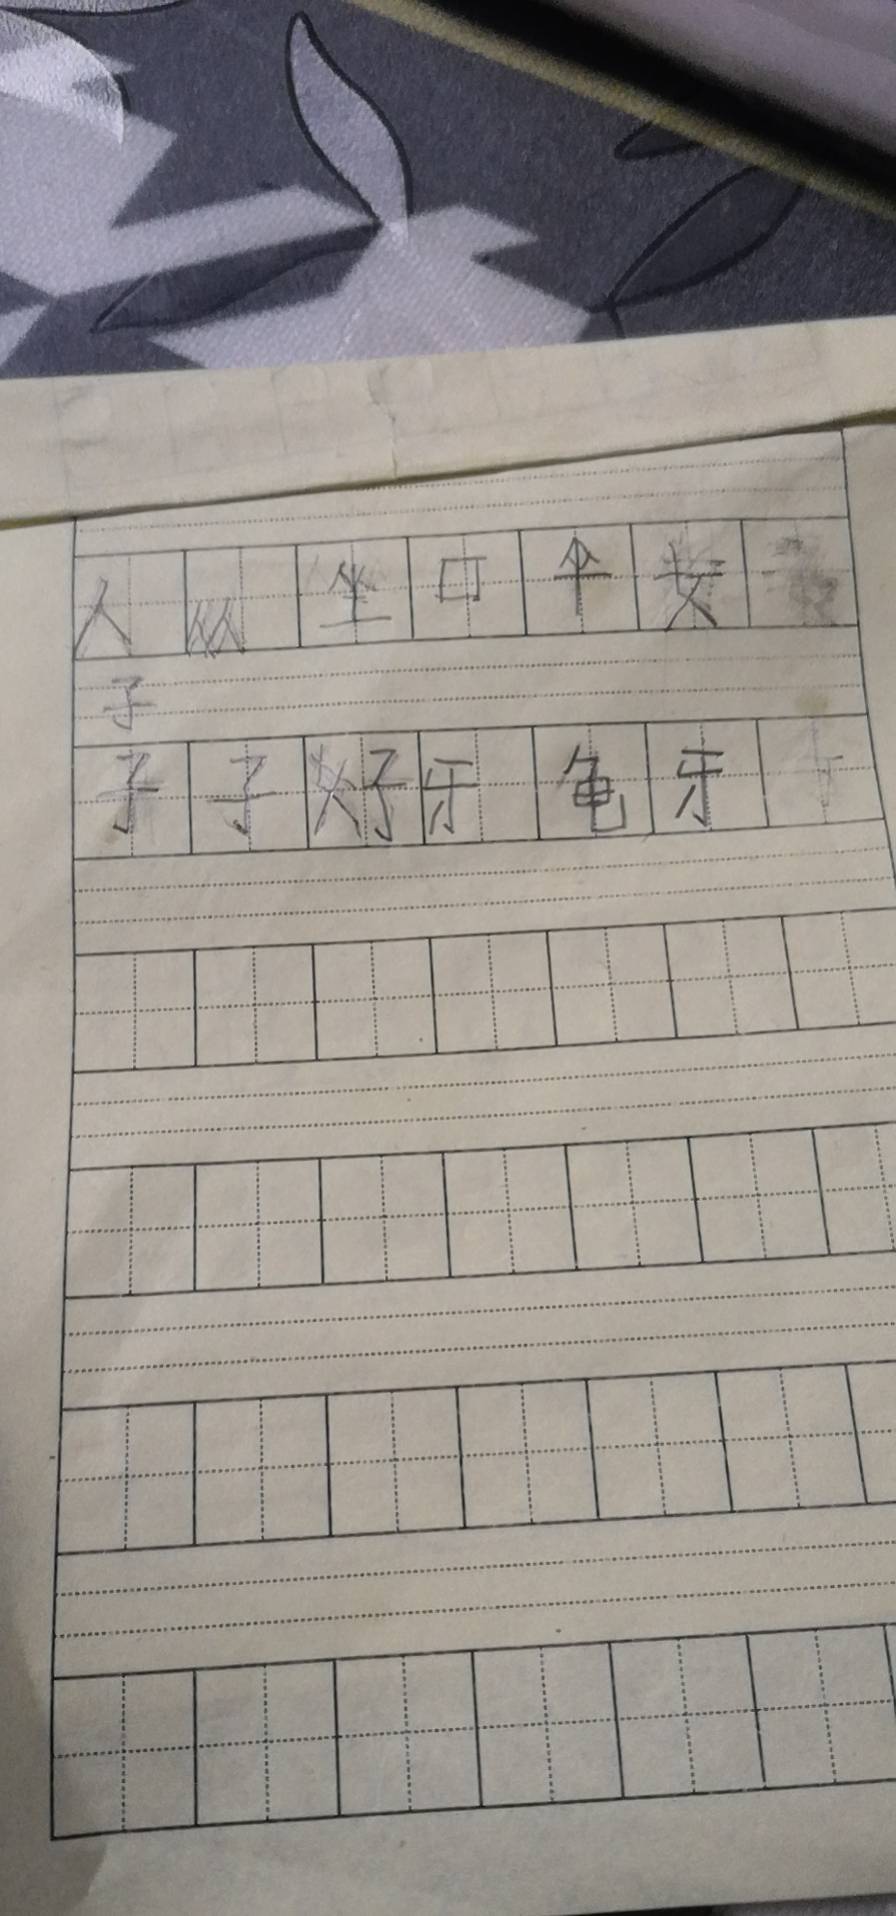 人 从 坐 口 伞 女
子
子 子 好 牙 龟 牙